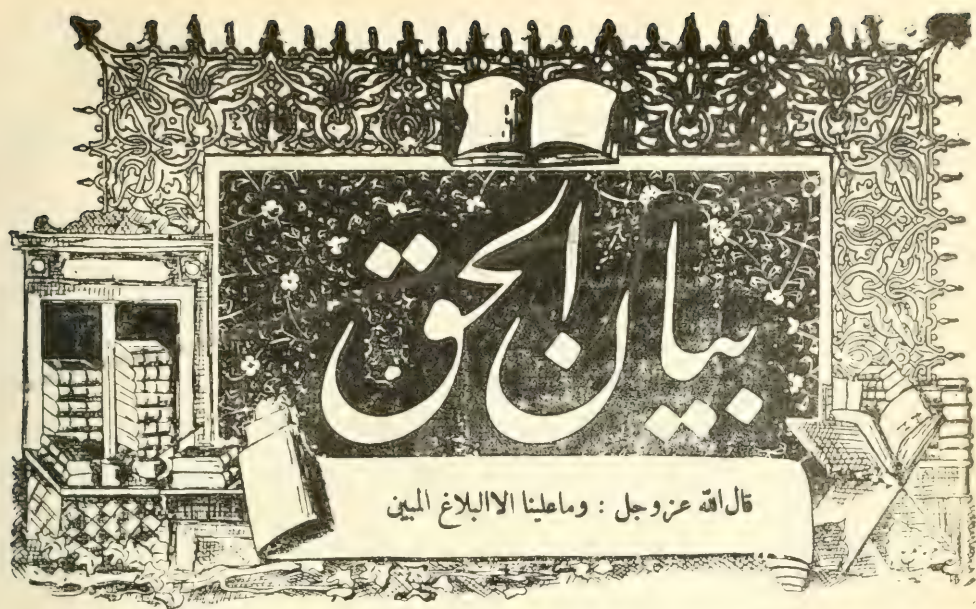 بيان الحق
قال الله عز وجل : وماعلينا الاالبلاغ المبين